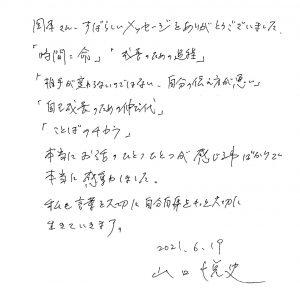 岡本さん、すばらしいメッセージをありがとうございました。
「時間＝命」「成長のための過程」
「相手が変わらないのではない、自分の伝え方が悪い」
「自己成長のための仲間」
「ことばのチカラ」
本当にお話のひとつひとつが感じる事ばかりで
本当に感動しました。
私も言葉を大切に自分自身をもっと大切に
生きていきます。
2021.6.19
山口